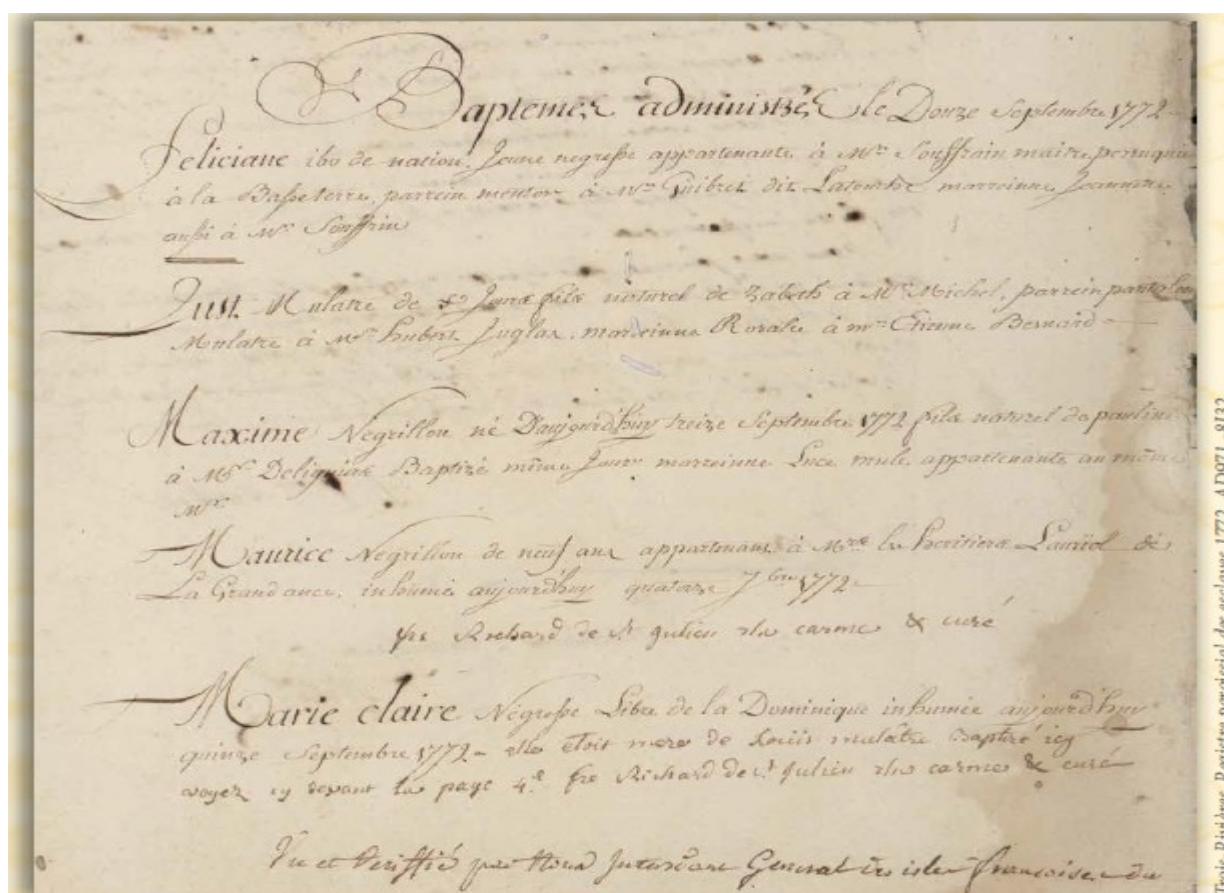 Baptemes administrés le Douze Septembre 1772
Feliciane ibo de nation, Jeune negresse appartenante à Mr Souffrain maitre perruquier
à la Basseterre, parrein mentor à Mr Guibert dit Latouche marreinne Jeannette
aussi à Mr Souffrin
Just Mulatre de Jours fils naturel de Zabeth à Mr Michel, parrein pantaleon
Mulatre à Mr hubert Juglas, marreinne Rosalie à mr Etienne Bernard
Maxime Negrillon né D'aujourd'huy treize Septembre 1772 fils naturel de pauline
à Mr Delignias Baptizé même Jour marreinne Luce mule appartenante au même
Mr
Maurice Negrillon de neuf ans appartenant à Mrs les heritiers Lauriol de
La Grand ance, inhumé aujourd'huy quatorze 7bre 1772
fre Richard de St Julien carme & curé
Marie claire Négresse Libre de la Dominique inhumée aujourd'huy
quinze Septembre 1772 elle étoit mere de Loüis mulâtre Baptizé icy
voyez cy devant la page 4e fre Richard de St Julien carme & curé
Vu et Veriffié par Nous Intendant General des isles françoises du
Registre paroissial des esclaves 1772, AD971 8J32